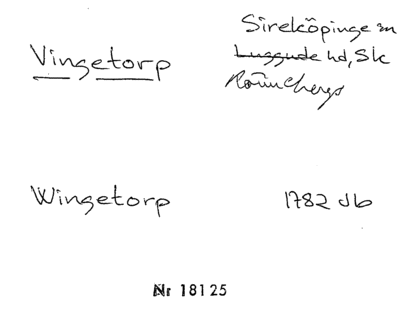 Vingetorp
Sirekôpinge sn
Luggude hd, Sk
Rönnebergs
Wingetorp
1782 Jb
Nr 18125